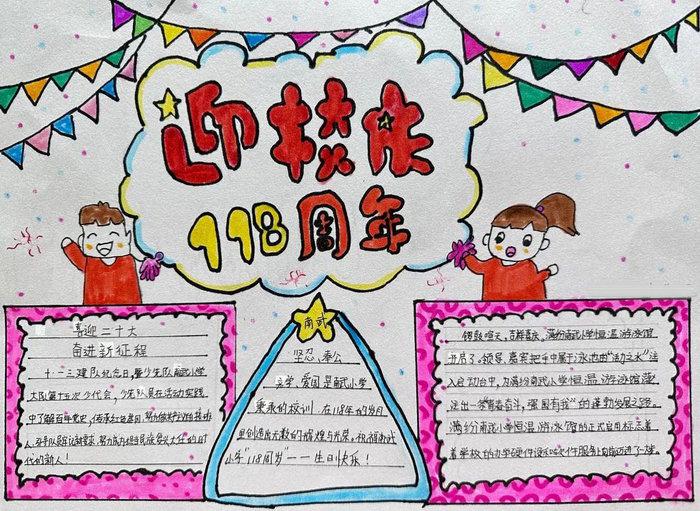 迎校庆
118周年
喜迎二十大
奋进新征程
十·一三建队纪念日暨少先队南武小学
大队第十五次少代会,少先队员在活动实践
中了解百年党史,传承红色基因,努力做新时代好接班
人。各中队踔厉奋发,努力成为担当民族复兴大任的时
代的新人!
南武
坚忍、奉公
关学、爱国是南武小学
秉承的校训,在118年的岁月
里创造出无数的辉煌与光荣,祝福南武
小学“118周岁”——生日快乐!
锣鼓喧天,吉祥喜庆,满纷南武小学恒温游泳馆
开启了。领导、嘉宾把手中属于泳池的“活力之水”注
入启动台中,为满纷南武小学恒温游泳馆
走出一条“青春奋斗,强国有我”的蓬勃发展之路。
满纷南武小学恒温游泳馆的正式启用标志着
着学校的办学硬件设和软件服务上向前迈进了一大步。